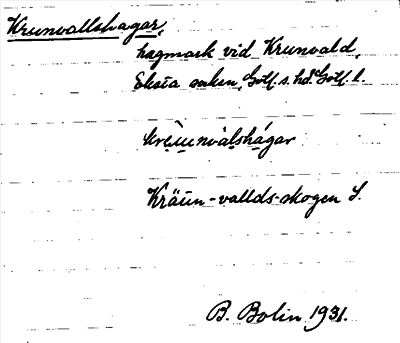 Krunvallshagar,
hagmark vid Krunvald,
Eksta socken, Gotl. s. hd. Gotl. l.
kre̍u̯nvalshágar
Kräun-vallds-skogen S.
B. Bolin 1931.